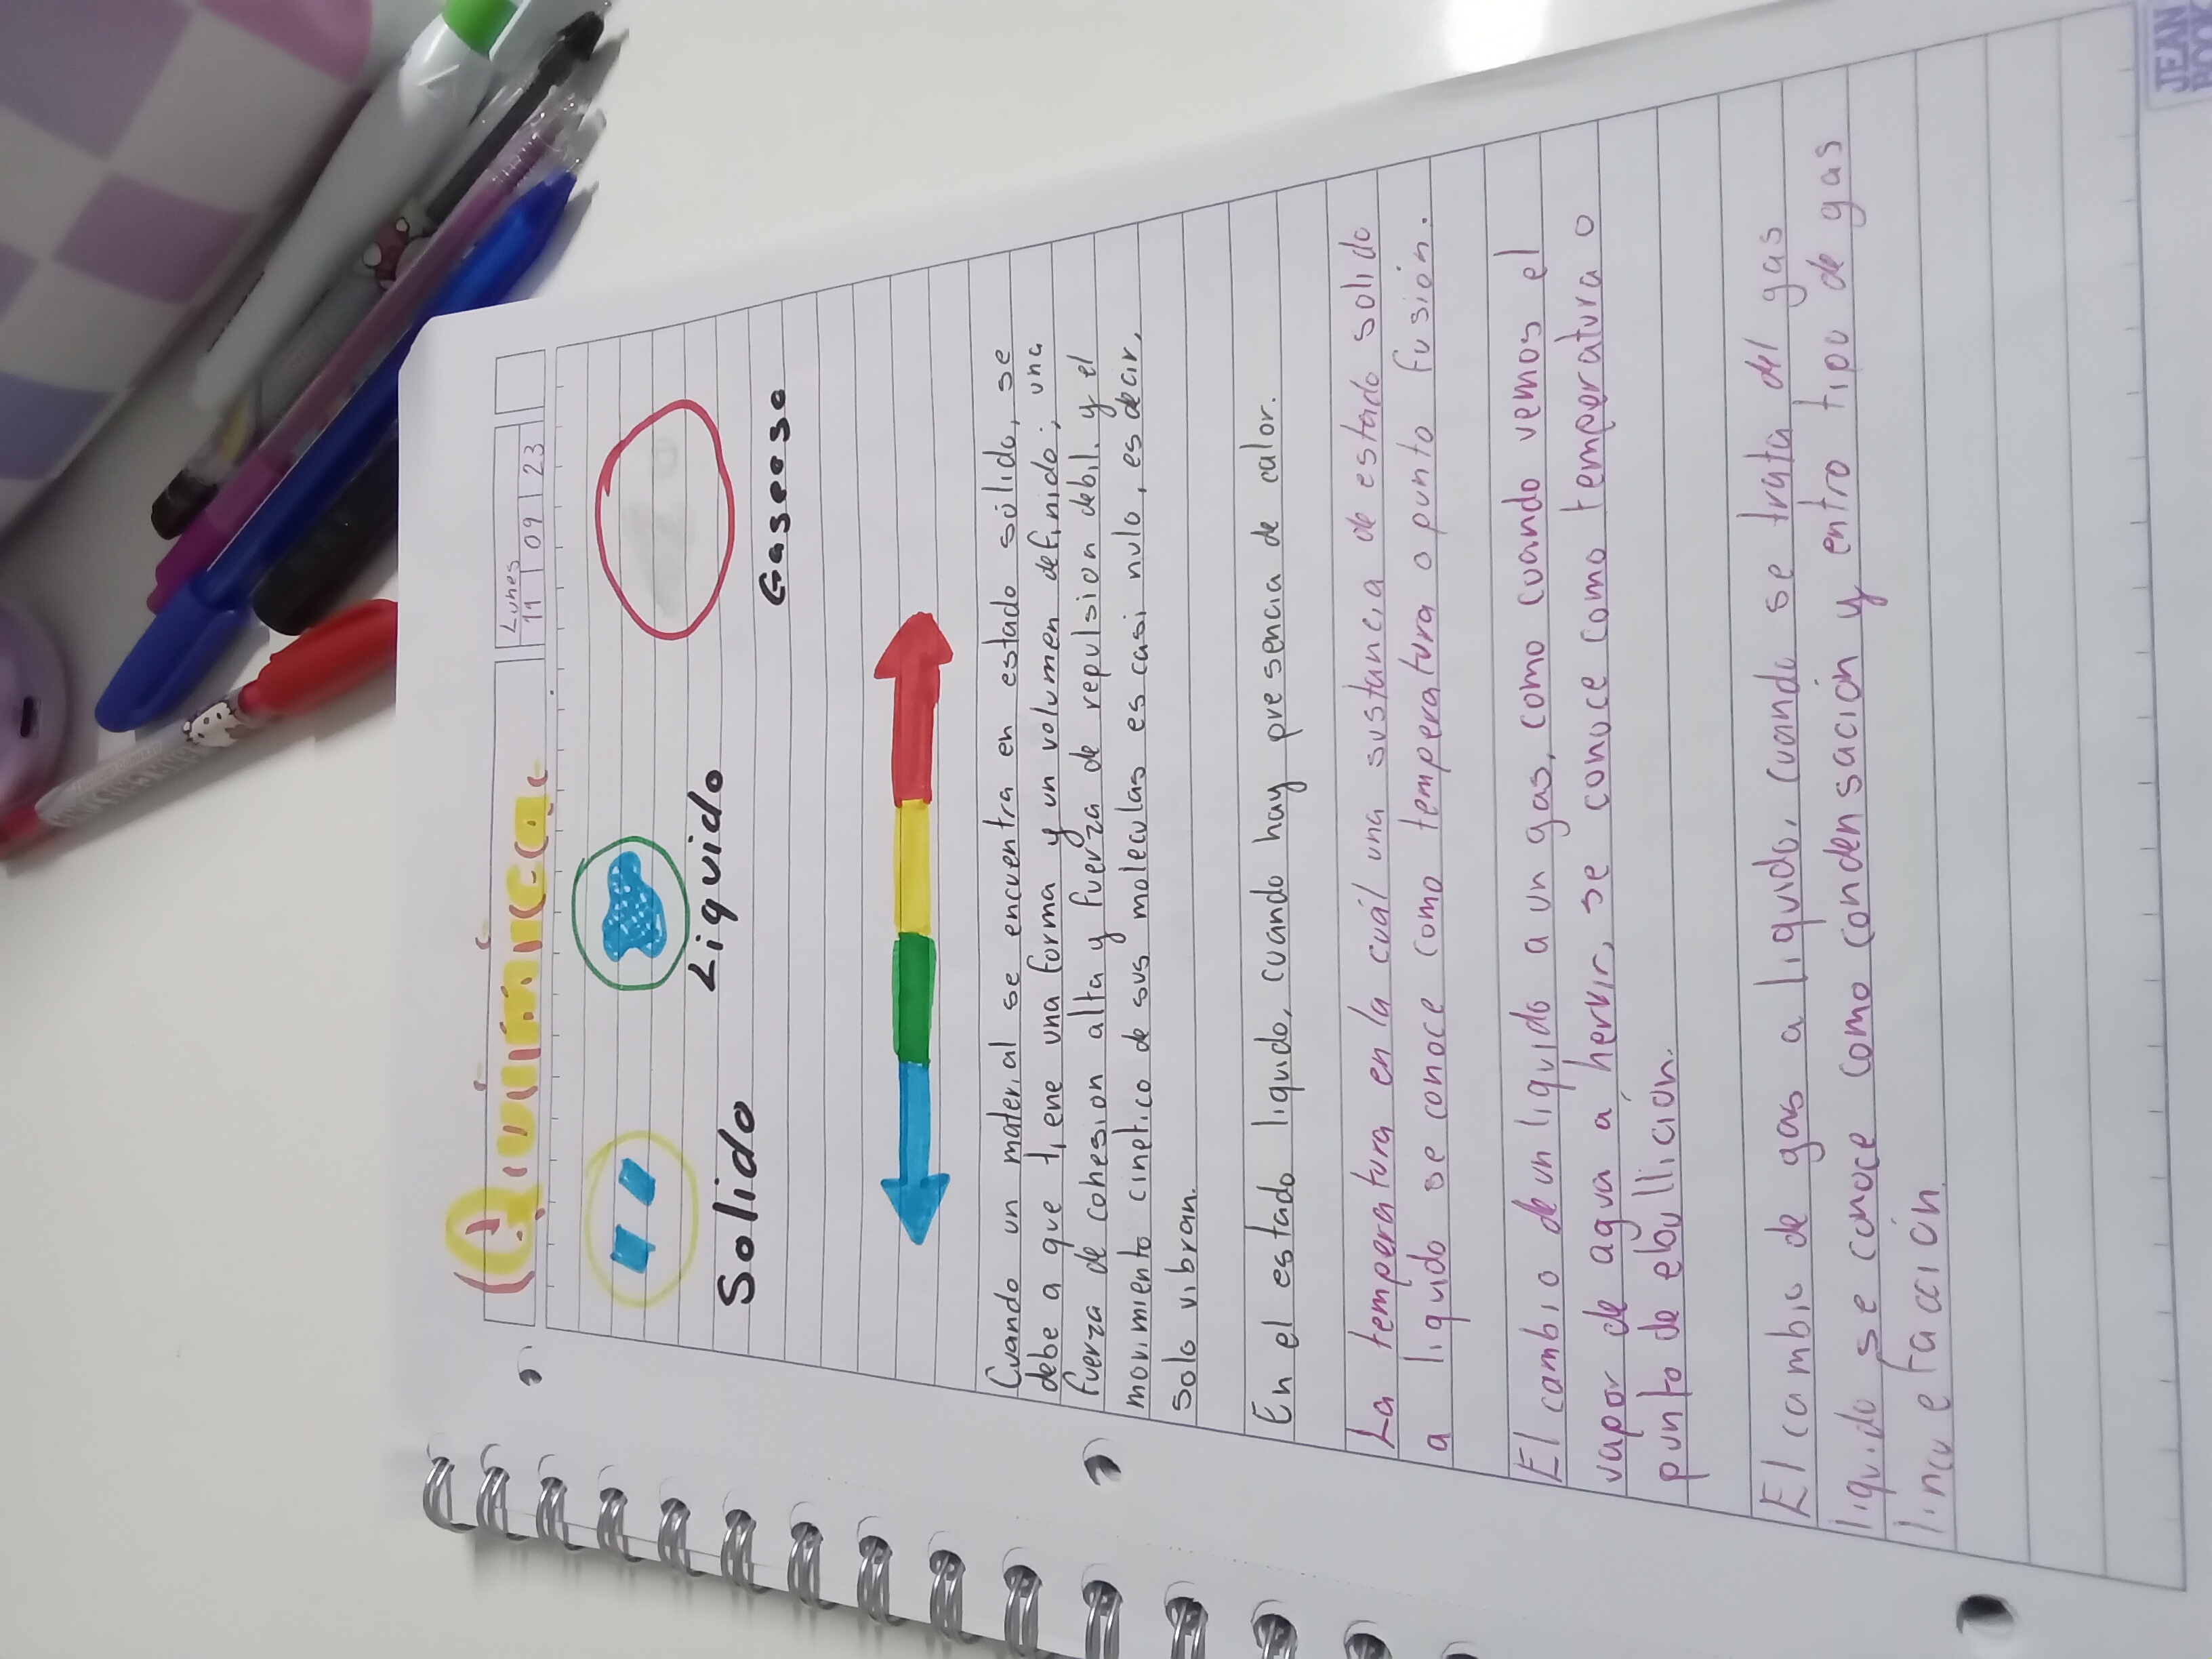 Química.
Lunes
11 09 23
Solido
Liquido
Gaseoso
Cuando un material se encuentra en estado sólido, se
debe a que tiene una forma y un volumen definido; una
fuerza de cohesion alta y fuerza de repulsion debil, y el
movimiento cinetico de sus moleculas es casi nulo, es decir,
solo vibran.
En el estado liquido, cuando hay presencia de calor.
La temperatura en la cuál una sustancia de estado solido
a liquido se conoce como temperatura o punto fusión.
El cambio de un liquido a un gas, como cuando vemos el
vapor de agua a hervir, se conoce como temperatura o
punto de ebullición.
El cambio de gas a liquido, cuando se trata del gas
liquido se conoce como condensación y entro tipo de gas
JEAN
BOOK